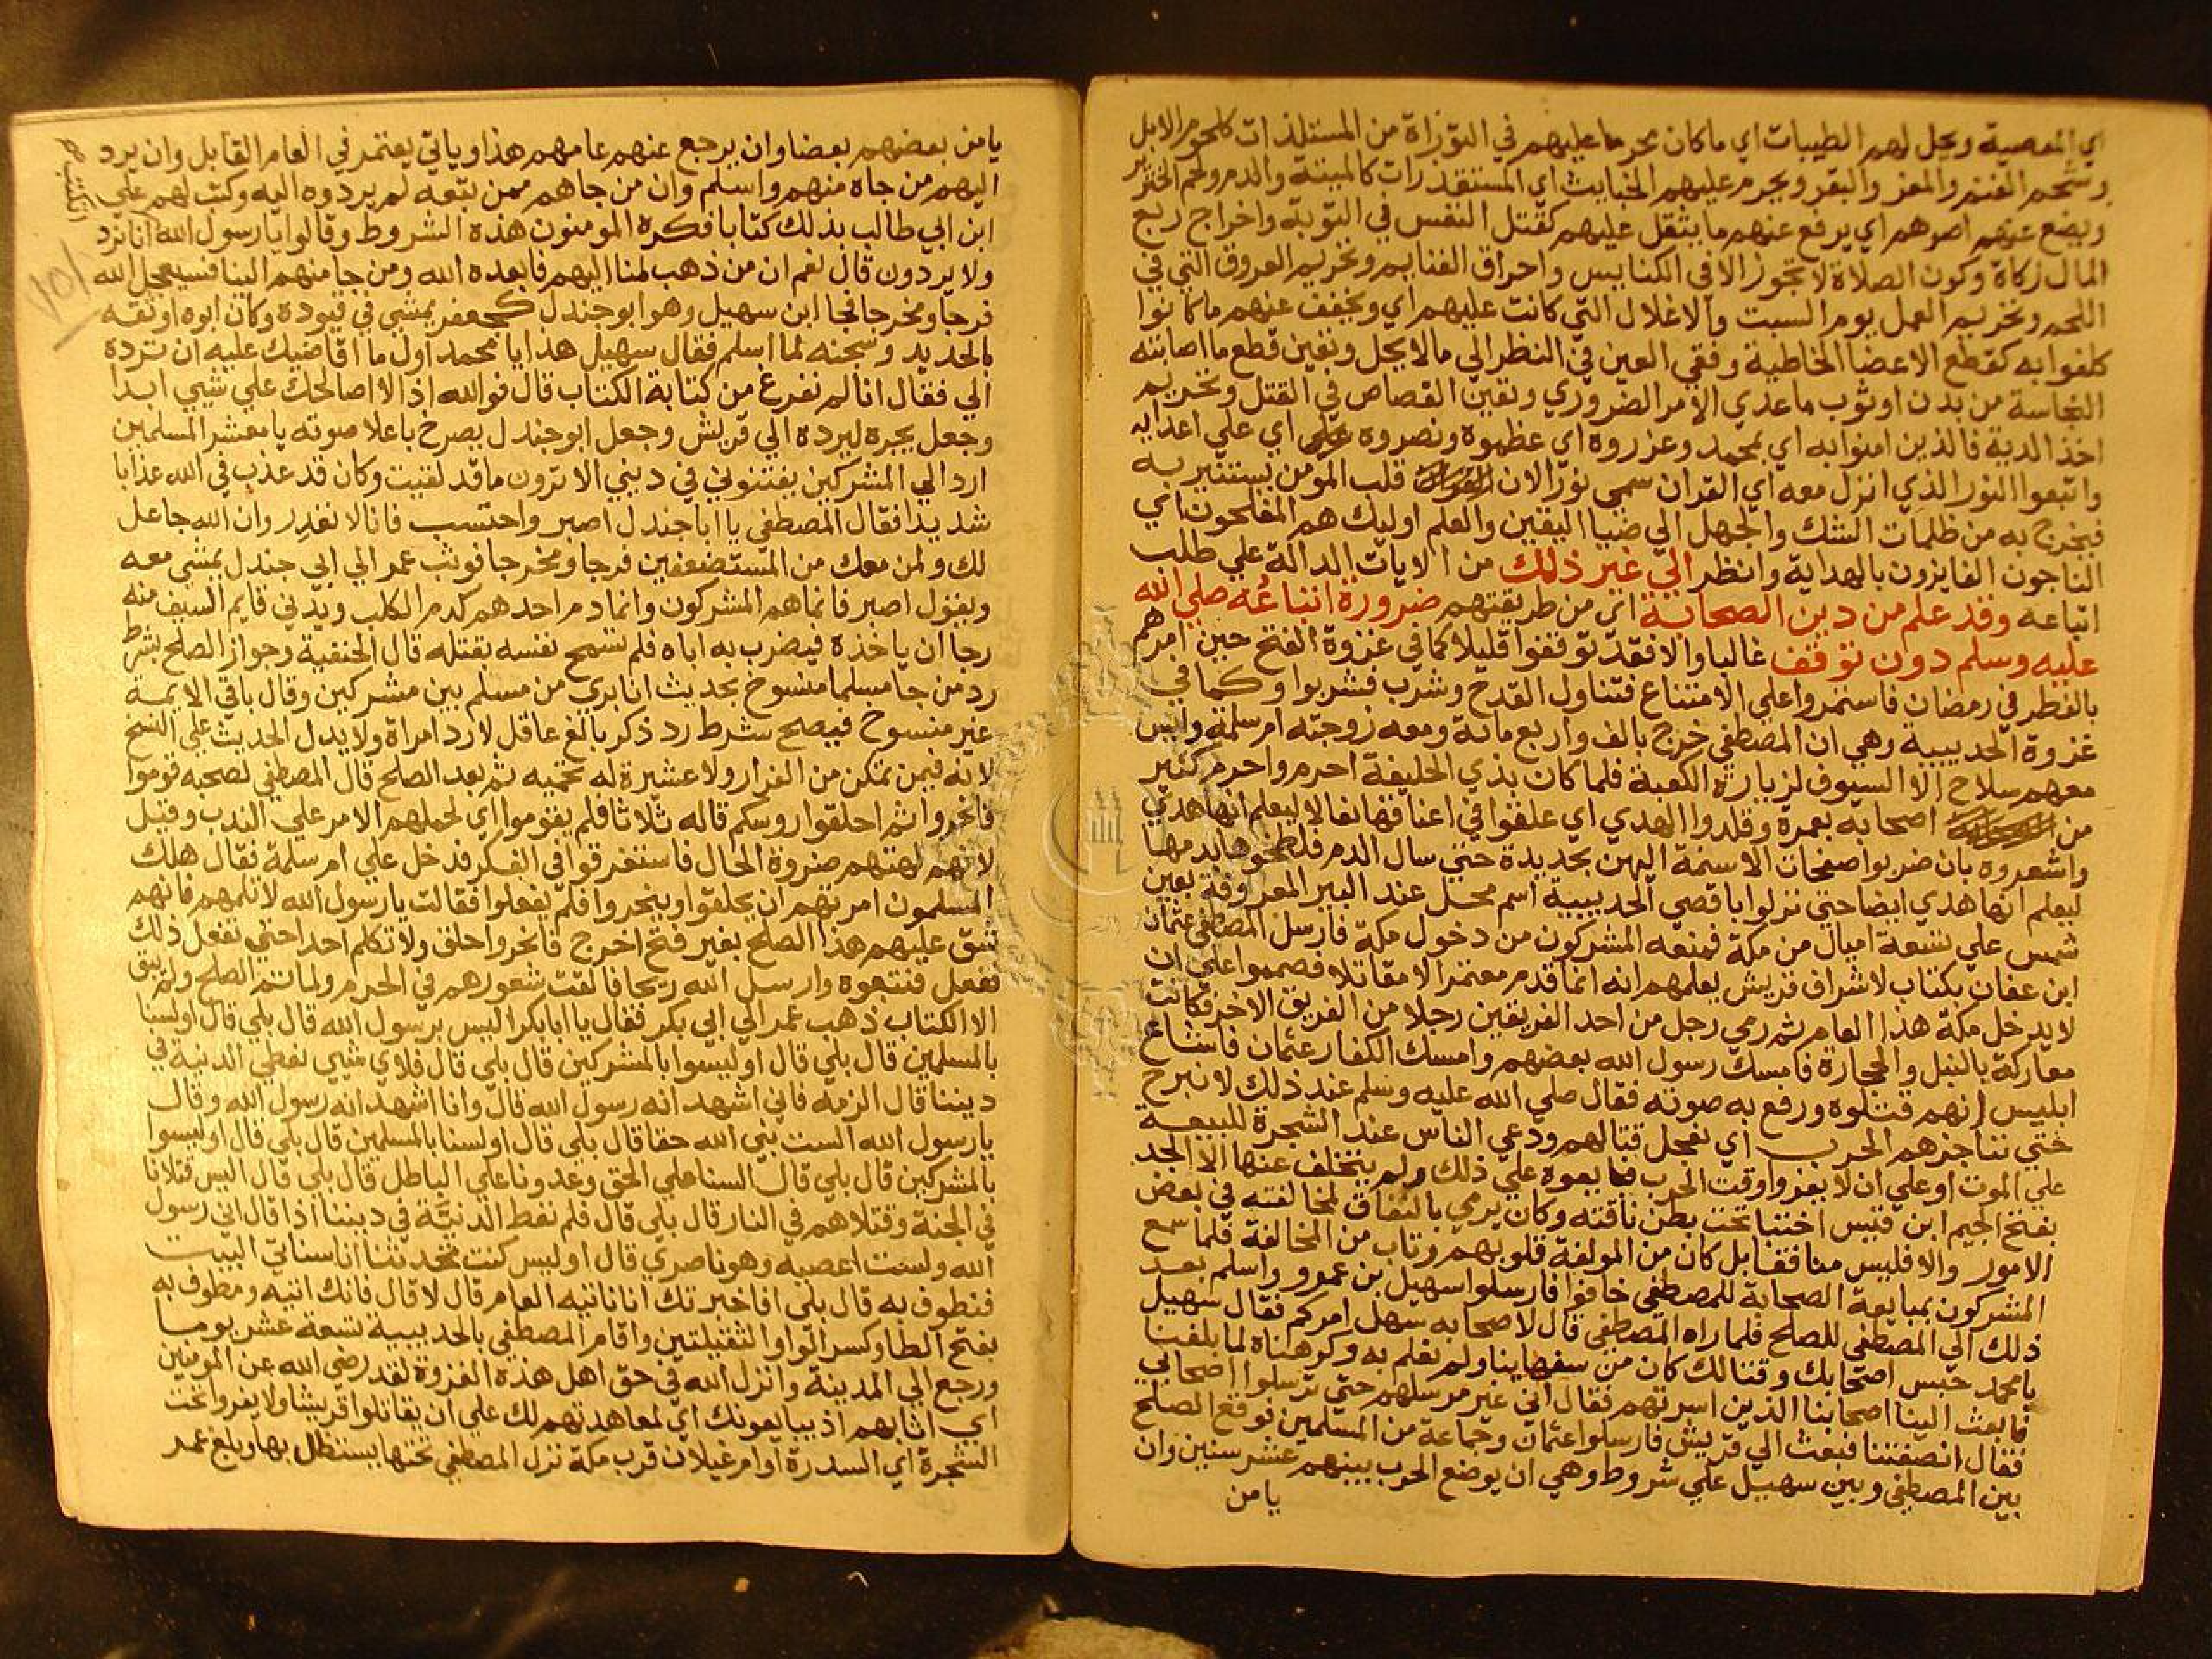 اي المعصية ويحل لهم الطيبات اي ماكان محرما عليهم في التوراة من المستلذات كلحوم الابل
وشحم الغنم والمعز والبقر ويحرم عليهم الخبايث اي المستقذرات كالميتة والدم ولحم الخنزير
ويضع عنهم اصرهم اي يرفع عنهم ما يثقل عليهم كقتل النفس في التوبة واخراج ربع
المال زكاة وكون الصلاة لا تجوز الا في الكنايس واحراق الغنايم وتحريم العروق التي في
اللحم وتحريم العمل يوم السبت والاغلال التي كانت عليهم اي ويخفف عنهم ما كانوا
كلفوا به كقطع الاعضا الخاطية وفقي العين في النظر الي ما لا يحل وتعين قطع ما اصابته
النجاسة من بدن او ثوب ماعدي الامر الضروري وتعين القصاص في القتل وتحريم
اخذ الدية فالذين امنوا به اي بمحمد وعزروه اي عظموه ونصروه اي علي اعدايه
واتبعوا النور الذي انزل معه اي القران سمي نورا لان قلب المومن يستنير به
فيخرج به من ظلمات الشك والجهل الي ضيا اليقين والعلم اوليك هم المفلحون اي
الناجون الفايزون بالهداية وانظر الي غير ذلك من الايات الدالة علي طلب
اتباعه وقد علم من دين الصحابة اي من طريقتهم ضرورة اتباعه صلي الله
عليه وسلم دون توقف غالبا والا فقد توقفوا قليلا كما في غزوة الفتح حين امرهم
بالفطر في رمضان فاستمروا علي الامتناع فتناول القدح وشرب فشربوا وكما في
غزوة الحديبية وهي ان المصطفي خرج بالف واربع ماية ومعه زوجته ام سلمة وليس
معهم سلاح الا السيوف لزيارة الكعبة فلما كان بذي الحليفة احرم واحرم كثير
من اصحابه بعمرة وقلدوا الهدي اي علقوا في اعناقها نعالا ليعلم انها هدي
واشعروه بان ضربوا صفحات الاسنمة اليمن بحديدة حتي سال الدم فلطخوها بدمها
ليعلم انها هدي ايضا حتي نزلوا باقصي الحديبية اسم محل عند البير المعروفة بعين
شمس علي تسعة اميال من مكة فمنعه المشركون من دخول مكة فارسل المصطفي عثمان
ابن عفان بكتاب لاشراف قريش يعلمهم انه انما قدم معتمرا لا مقاتلا فصمموا علي ان
لا يدخل مكة هذا العام ثم رمي رجل من احد الفريقين رجلا من الفريق الاخر فكانت
معاركة بالنبل والحجارة فامسك رسول الله بعضهم وامسك الكفار عثمان فاشاع
ابليس انهم قتلوه ورفع به صوته فقال صلي الله عليه وسلم عند ذلك لا نبرح
حتي نناجزهم الحرب اي نعجل قتالهم ودعي الناس عند الشجرة للبيعة
علي الموت او علي ان لا يفروا وقت الحرب فبايعوه علي ذلك ولم يتخلف عنها الا الجد
بفتح الجيم ابن قيس اختبا تحت بطن ناقته وكان يرمي بالنفاق لمخالفته في بعض
الامور والا فليس منافقا بل كان من المولفة قلوبهم وتاب من المخالفة فلما سمع
المشركون بمبايعة الصحابة للمصطفي خافوا فارسلوا سهيل بن عمرو واسلم بعد
ذلك الي المصطفي للصلح فلما راه المصطفي قال لاصحابه سهل امركم فقال سهيل
يا محمد حبس اصحابك وقتالك كان من سفهاينا ولم نعلم به وكرهناه لما بلغنا
فابعث الينا اصحابنا الذين اسرتهم فقال اني غير مرسلهم حتي ترسلوا اصحابي
فقال انصفتنا فبعث الي قريش فارسلوا عثمان وجماعة من المسلمين فوقع الصلح
بين المصطفي وبين سهيل علي شروط وهي ان يوضع الحرب بينهم عشر سنين وان
يامن
يامن بعضهم بعضا وان يرجع عنهم عامهم هذا وياتي يعتمر في العام القابل وان يرد
اليهم من جاه منهم واسلم وان من جاهم ممن تبعه لم يردوه اليه وكتب لهم علي
ابن ابي طالب بذلك كتابا فكره المومنون هذه الشروط وقالوا يا رسول الله انا نرد
ولا يردون قال نعم ان من ذهب منا اليهم فابعده الله ومن جا منهم الينا فسيجعل الله
فرجا ومخرجا فجا ابن سهيل وهو ابو جندل كجعفر يمشي في قيوده وكان ابوه اوثقه
بالحديد وسجنه لما اسلم فقال سهيل هذا يا محمد اول ما اقاضيك عليه ان ترده
الي فقال انا لم نفرغ من كتابة الكتاب قال فوالله اذا لا اصالحك علي شيي ابدا
وجعل يجره ليرده الي قريش وجعل ابو جندل يصرخ باعلا صوته يا معشر المسلمين
ارد الي المشركين يفتنوني في ديني الا ترون ما قد لقيت وكان قد عذب في الله عذابا
شديدا فقال المصطفي يا ابا جندل اصبر واحتسب فانا لا نغدر وان الله جاعل
لك ولمن معك من المستضعفين فرجا ومخرجا فوثب عمر الي ابي جندل يمشي معه
ويقول اصبر فانما هم المشركون وانما دم احدهم كدم الكلب ويدني قايم السيف منه
رجا ان ياخذه فيضرب به اباه فلم تسمح نفسه بقتله قال الحنفية وجواز الصلح بشرط
رد من جا مسلما منسوخ بحديث انا بري من مسلم بين مشركين وقال باقي الايمة
غير منسوخ فيصح شرط رد ذكر بالغ عاقل لا رد امراة ولا يدل الحديث علي النسخ
لانه فيمن تمكن من الفرار ولا عشيرة له تحميه ثم بعد الصلح قال المصطفي لصحبه قوموا
فانحروا ثم احلقوا روسكم قاله ثلاثا فلم يقوموا اي لحملهم الامر علي الندب وقيل
لانهم لهتهم ضروة الحال فاستغرقوا في الفكر فدخل علي ام سلمة فقال هلك
المسلمون امرتهم ان يحلقوا وينحروا فلم يفعلوا فقالت يا رسول الله لا تلمهم فانهم
شق عليهم هذا الصلح بغير فتح اخرج فانحر واحلق ولا تكلم احدا حتي تفعل ذلك
ففعل فتبعوه وارسل الله ريحا فالقت شعورهم في الحرم ولما تم الصلح ولم يبق
الا الكتاب ذهب عمر الي ابي بكر فقال يا ابا بكر اليس برسول الله قال بلي قال اولسنا
بالمسلمين قال بلي قال اوليسوا بالمشركين قال بلي قال فلاي شيي نعطي الدنية في
ديننا قال الزمه فاني اشهد انه رسول الله قال وانا اشهد انه رسول الله وقال
يا رسول الله الست نبي الله حقا قال بلي قال اولسنا بالمسلمين قال بلي قال اوليسوا
بالمشركين قال بلي قال السنا علي الحق وعدونا علي الباطل قال بلي قال اليس قتلانا
في الجنة وقتلاهم في النار قال بلي قال فلم نعط الدنية في ديننا اذا قال اني رسول
الله ولست اعصيه وهو ناصري قال اوليس كنت تحدثنا انا سناتي البيت
فنطوف به قال بلي افاخبرتك انا ناتيه العام قال لا قال فانك اتيه ومطوف به
بفتح الطا وكسر الواو الثقيلتين واقام المصطفي بالحديبية تسعة عشر يوما
ورجع الي المدينة وانزل الله في حق اهل هذه الغزوة لقد رضي الله عن المومنين
اي اثابهم اذ يبايعونك اي لمعاهدتهم لك علي ان يقاتلوا قريشا ولا يفروا تحت
الشجرة اي السدرة او ام غيلان قرب مكة نزل المصطفي تحتها يستظل بها وبلغ عمر